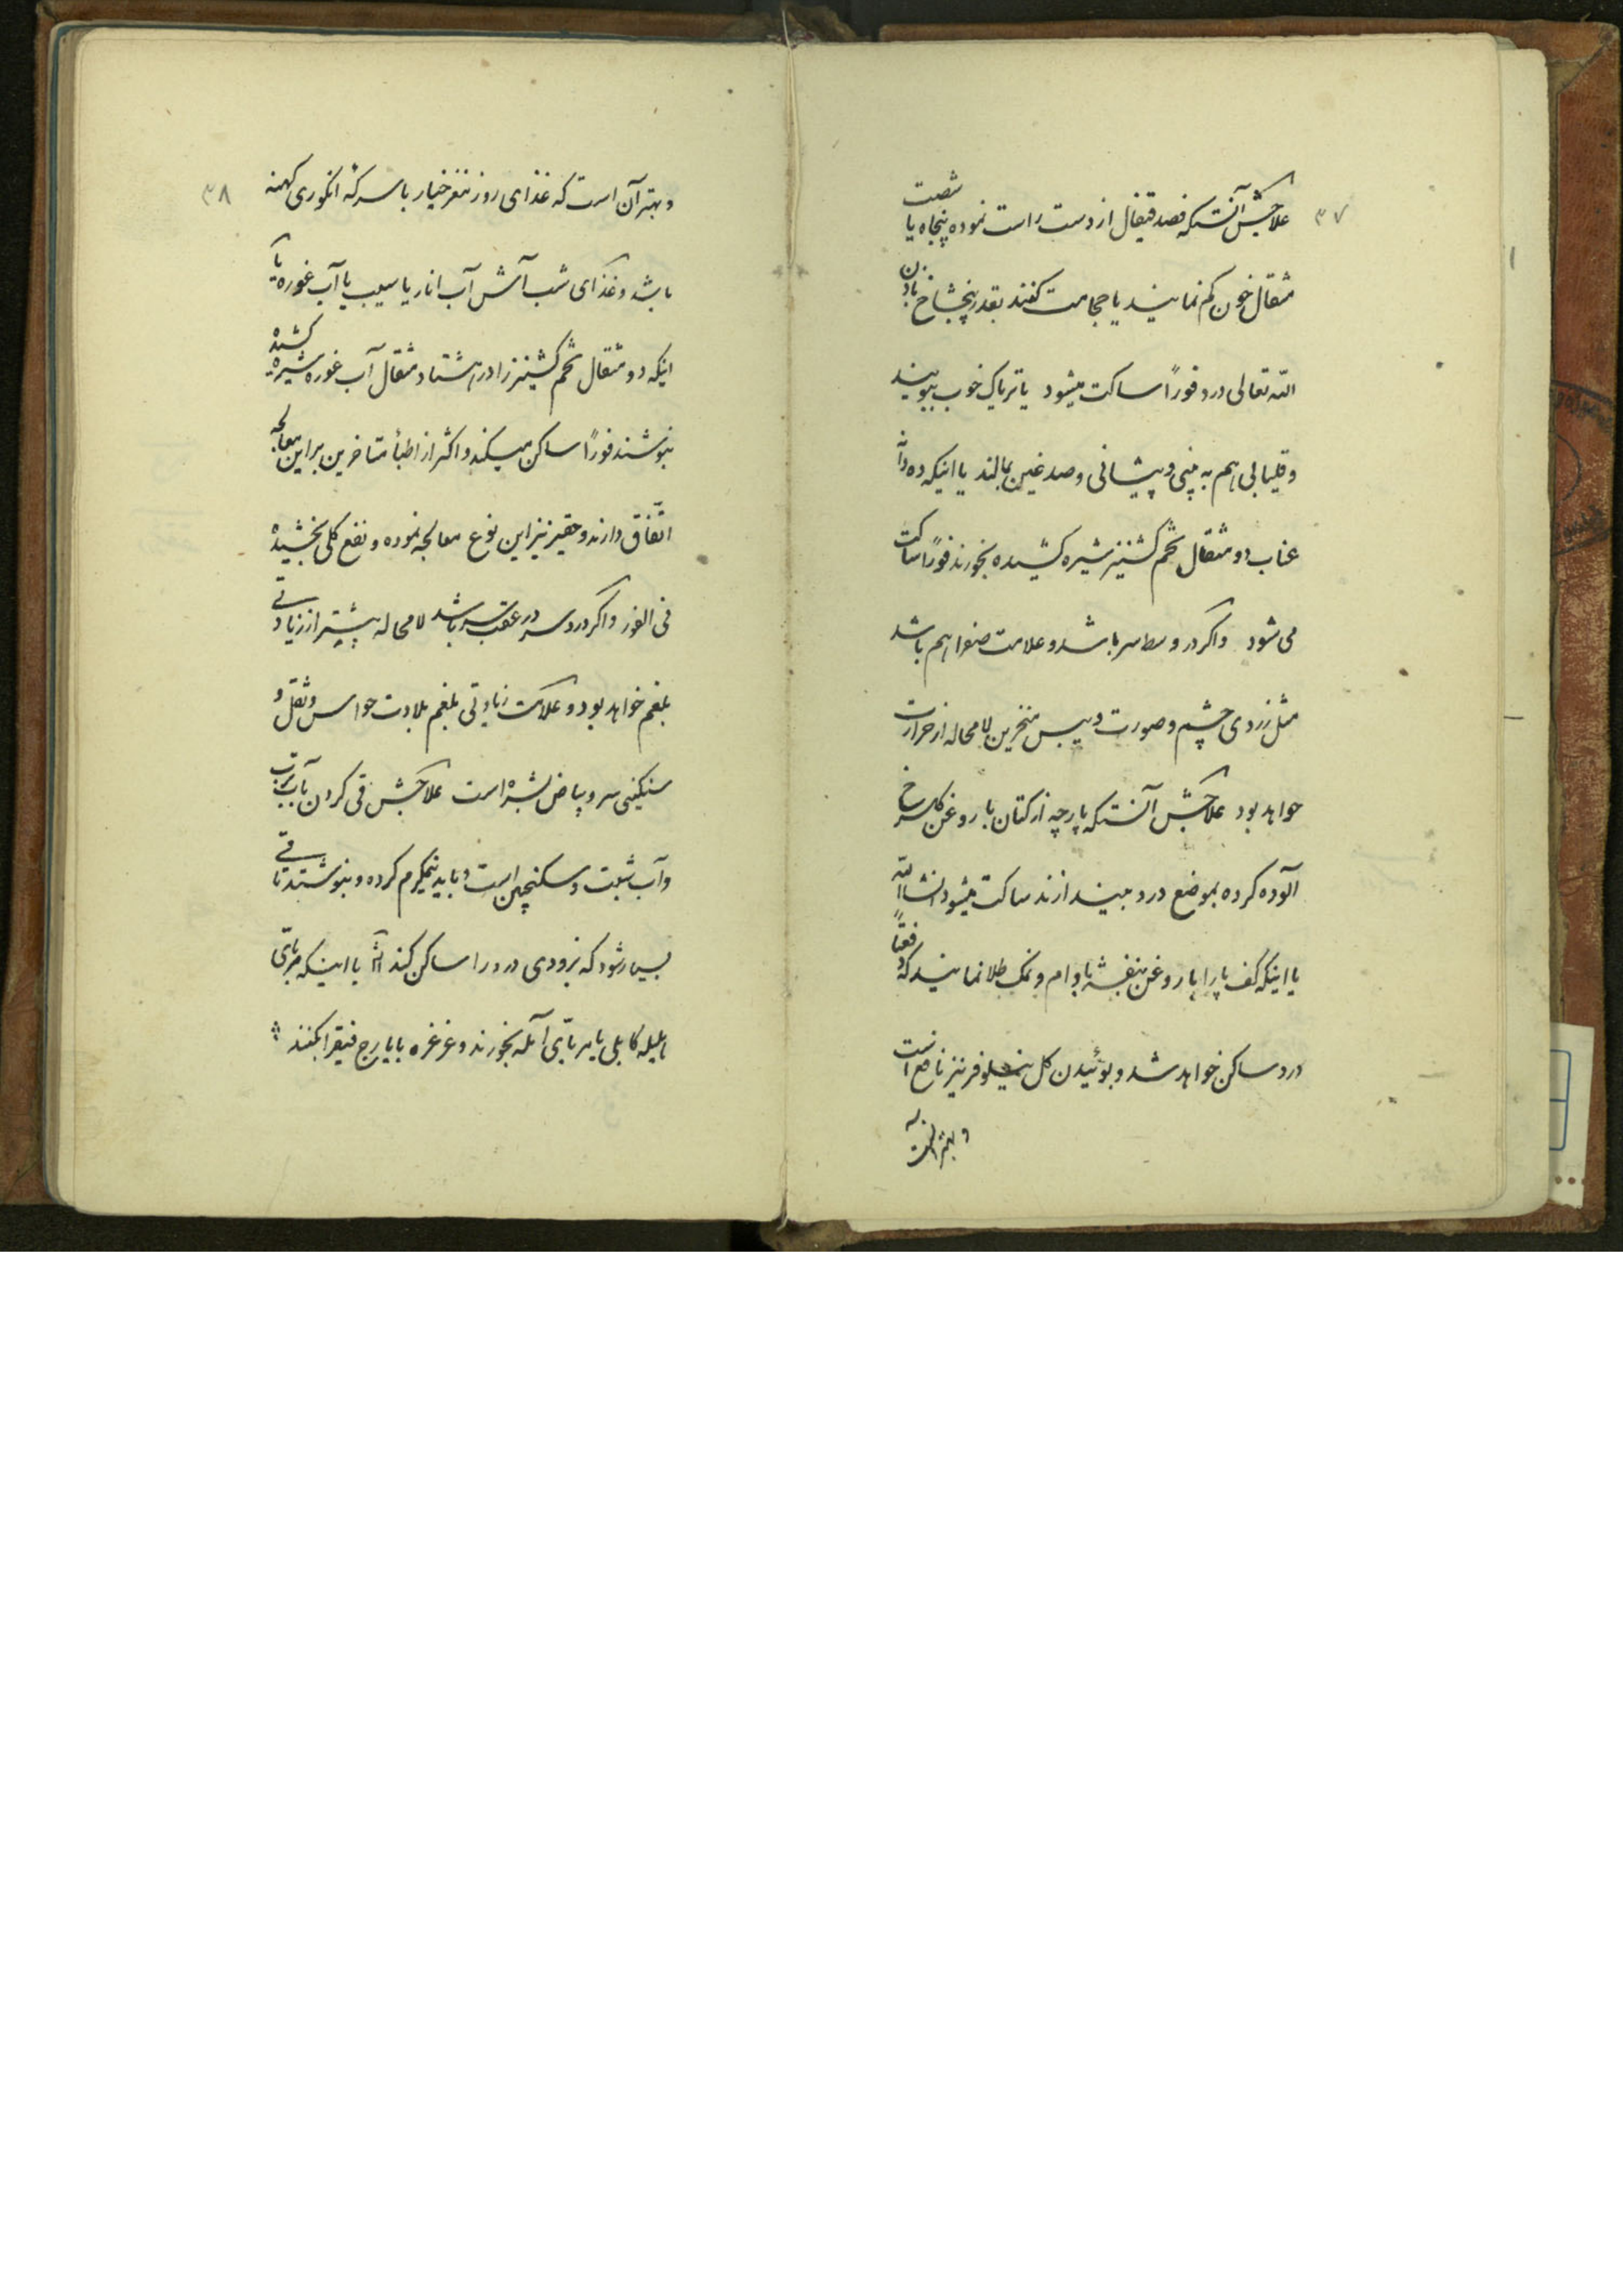 ۳۷
علاجش آنستکه فصد قیفال از دست راست نموده پنجاه یا شصت
مثقال خون کم نمایند یا حجامت کنند بقدر پنجشاخ باذن
الله تعالی درد فوراً ساکت میشود یا تریاک خوب ببویند
و قلیلی هم به بینی و پیشانی و صدغین بمالند یا اینکه ده دانه
عناب دو مثقال تخم کشنیز شیره کشیده بخورند فوراً ساکت
می شود و اگر در وسط سر باشد و علامت صفرا هم باشد
مثل زردی چشم و صورت و یبس منخرین لامحاله از حرارت
خواهد بود علاجش آنستکه پارچه از کتان با روغن کلسرخ
آلوده کرده بموضع درد بیندازند ساکت میشود انشاالله
یا اینکه کف پا را با روغن بنفشه بادام و نمک طلا نمایند که دفعتاً
درد ساکن خواهد شد و بوئیدن کل نیلوفر نیز نافع است
و بهتر آنست
۳۸
و بهتر آن است که غذای روز مغز خیار با سرکه انکوری کهنه
باشد و غذای شب آش آب انار یا سیب یا آب غوره یا
اینکه دو مثقال تخم کشنیز را در هشتاد مثقال آب غوره شیره کشیده
بنوشند فوراً ساکن میکند و اکثر از اطبأ متأخرین براین معالجه
اتّفاق دارند و حقیر نیز این نوع معالجه نموده و نفع کلی بخشیده
فی الفور و اگر درد سر در عقب سر باشد لامحاله بیشتر از زیادتی
بلغم خواهد بود و علامت زیادتی بلغم بلادت حواس و ثقل و
سنکینی سر و بیاض بشره است علاجش قی کردن بآب ترب
و آب شبت و سکنجبین است و باید نیمکرم کرده و بنوشند تا قی
بسیار شود که بزودی درد را ساکن کند یا اینکه مربّای
هلیله کابلی یا مربّای آمله بخورند و غرغره با یارج فیقرا بکنند